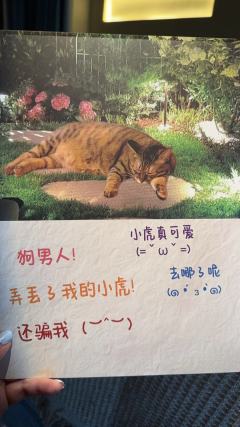 小虎真可爱
(=ˇωˇ=)
狗男人!
去哪了呢
弄丢了我的小虎!
还骗我 (︶^︶)